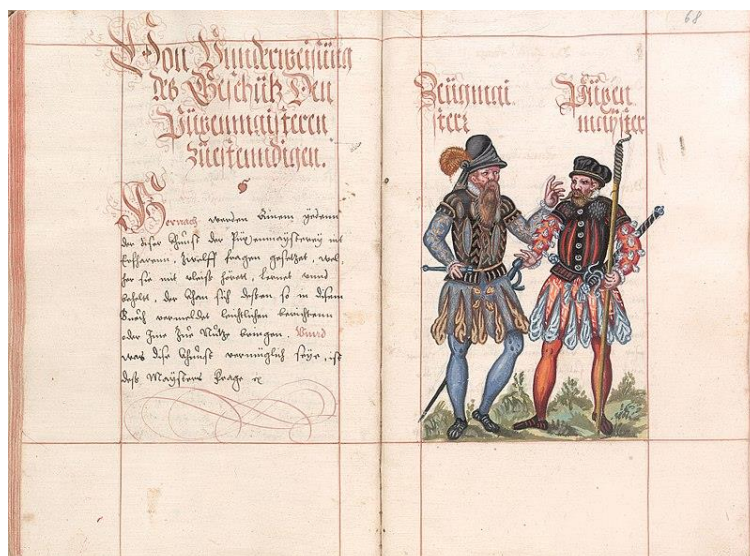 Von Vnnderweisung
des Geschütz Den
Püxenmaisteren
zuesteundigen.
Hernach werden Ainem yeden
der diser Khunst der Püxenmaysterey mit
erfharenn, Zwelff fragen gesetzet, wel,
her sie mit vleiß hörtt, lernet vnnd
behellt, der khan sich dessen so in disem
Buech vermeldet leichtlichen berichtenn
oder Ime Zue Nutze bringen. Vnnd
was dise Khunst vermüglich seye, ist
deß Maÿsters frage
68
Zeugmai
sterr
Püxen
maÿster